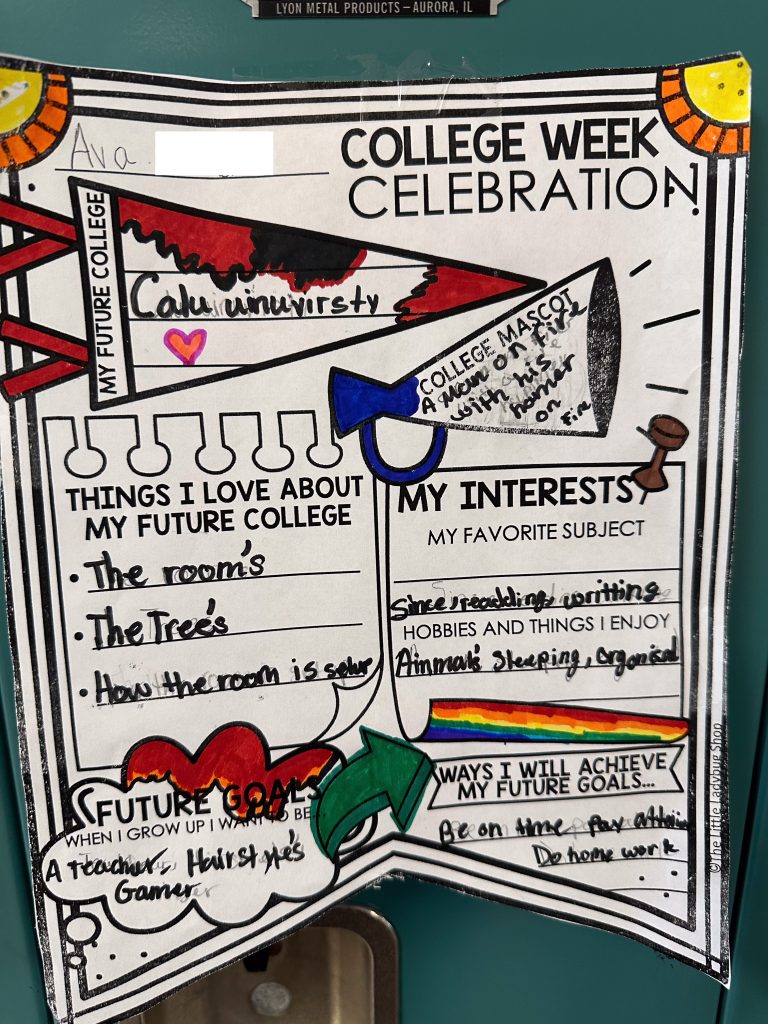 LYON METAL PRODUCTS – AURORA, IL
Ava
COLLEGE WEEK
CELEBRATION!
MY FUTURE COLLEGE
Calu uinuvirsty
COLLEGE MASCOT
A man on fire
with his
hamer
on
fire
THINGS I LOVE ABOUT
MY FUTURE COLLEGE
• The room's
• The Tree's
• How the room is setup
MY INTERESTS
MY FAVORITE SUBJECT
Since, readding, writting
HOBBIES AND THINGS I ENJOY
Ainmals Sleeping, Organised
FUTURE GOALS
WHEN I GROW UP I WANT TO BE...
A teacher, Hairstyle's
Gamer
WAYS I WILL ACHIEVE
MY FUTURE GOALS...
Be on time pay
Do home work
©The Little Ladybug Shop